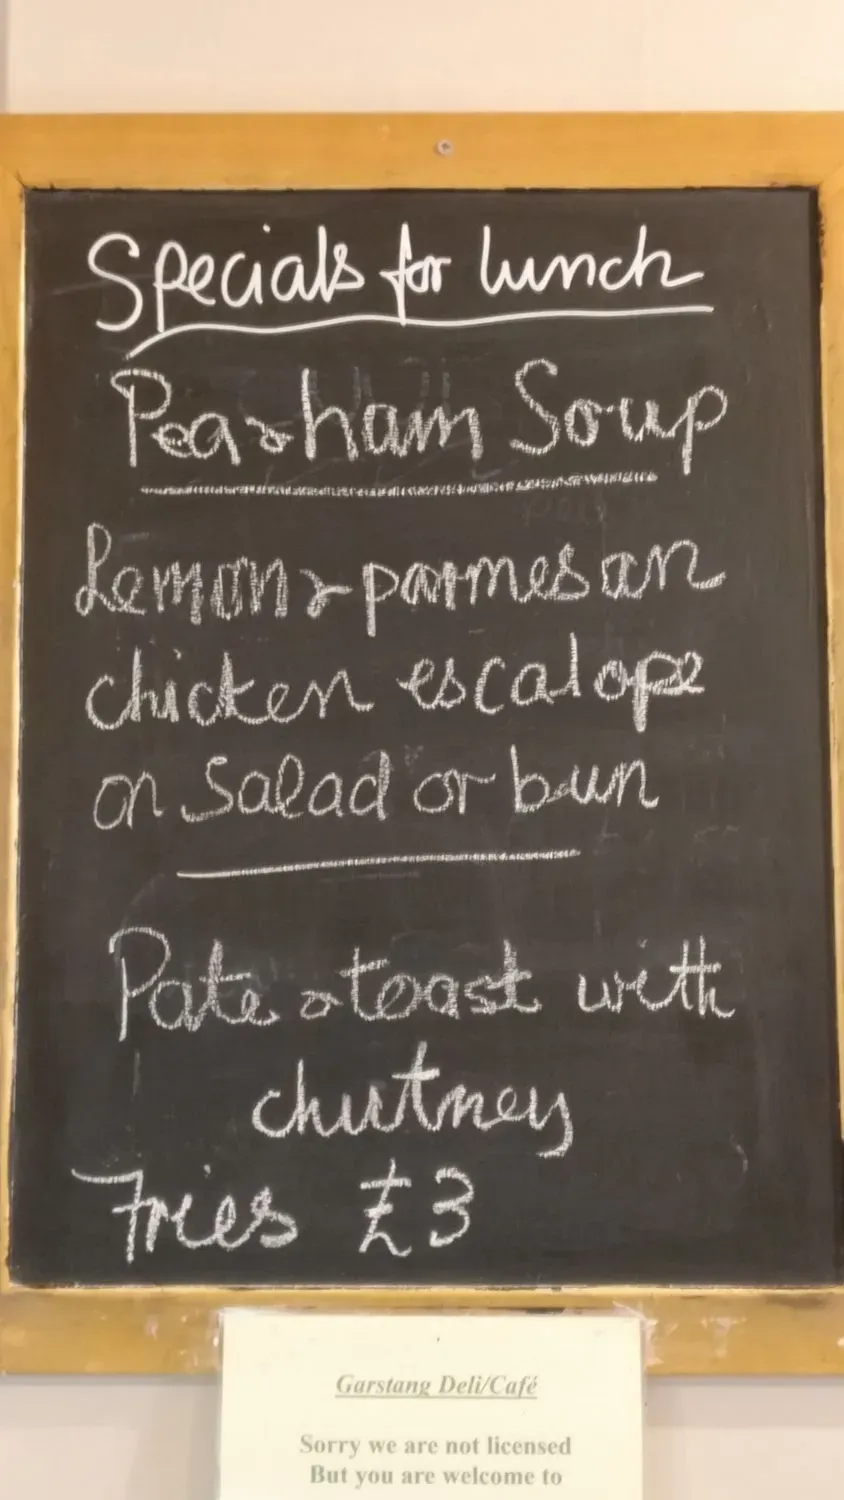 Specials for lunch
Pea & ham Soup
Lemon & parmesan
chicken escalope
on Salad or bun
Pate & toast with
chutney
Fries £3
Garstang Deli/Café
Sorry we are not licensed
But you are welcome to